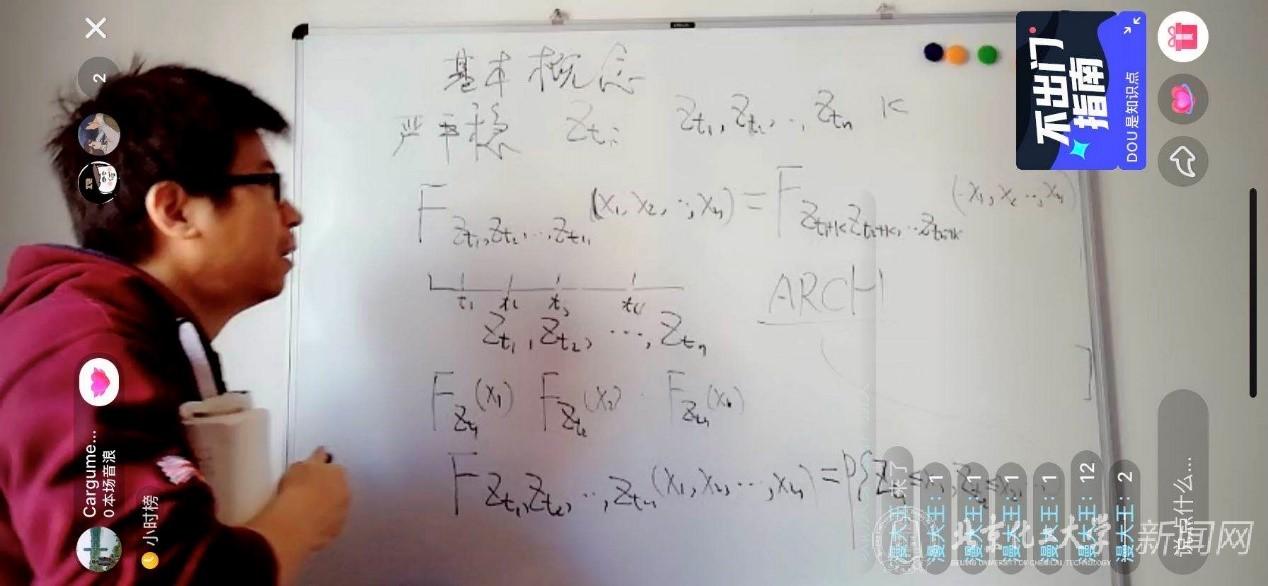 基本概念
严平稳 Zt: Zt₁, Zt₂, ..., Ztₙ K
F Zt₁,Zt₂,...,Ztₙ (x₁, x₂, ..., xₙ) = F Zt₁+k Zt₂+k, ...Ztₙ+k (x₁, x₂ ..., xₙ)
t₁ t₂ t₃ tₙ
ARCH
Zt₁, Zt₂, ..., Ztₙ
F Zt₁ (x₁) F Zt₂ (x₂) F Ztₙ (xₙ)
F Zt₁,Zt₂, ..., Ztₙ (x₁, x₂, ..., xₙ) = P{Z
不出门
指南
DOU是知识点
2
Cargume...
0本场音浪
小时榜
来了
漫大王: 1
漫大王: 1
漫大王: 1
漫大王: 1
漫大王: 12
漫大王: 2
说点什么...
北京化工大学 新闻网
BEIJING UNIVERSITY OF CHEMICAL TECHNOLOGY